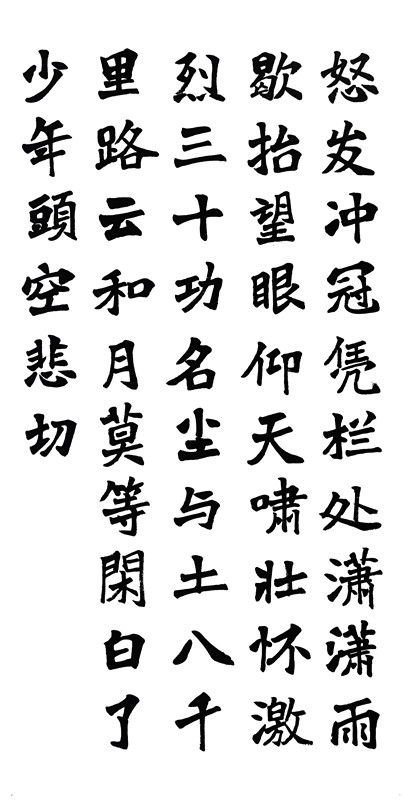 怒发冲冠凭栏处潇潇雨
歇抬望眼仰天啸壮怀激
烈三十功名尘与土八千
里路云和月莫等閑白了
少年頭空悲切